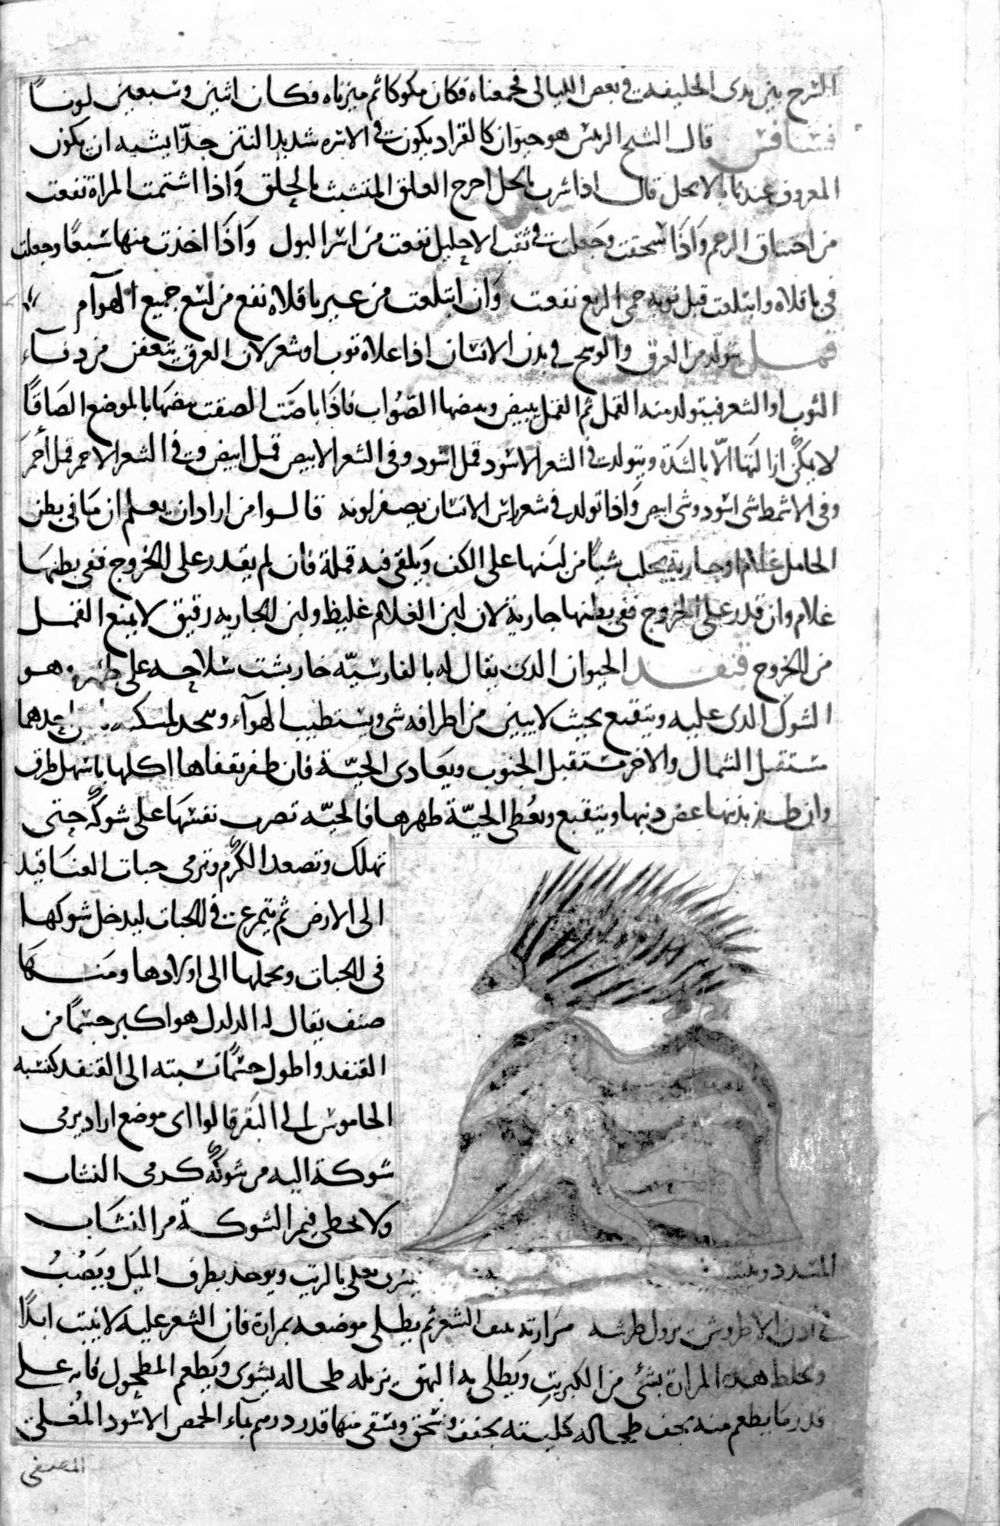 السرج بين يدى الخليفه فى بعض الليالى فجمعناه فكان مكوكا ثم ميزناه فكان اثنين وسبعين لونًا
فسافس قال الشيخ الرئيس هو حيوان كالقراد يكون فى الاسره شديد النتن جدّا يشبه ان يكون
المعروف عندنا بالانجل قال اذا شرب بالخل اخرج العلق المتشبث بالحلق وَاذا اشتمت المراة نفعت
من اختناق الرحم وَاذَا سحقت وجعلت فى ثقب الاحليل نفعت من اسر البول وَاذَا اخذت منها سبعًا وجعلت
فى باقلاه وابتلعت قبل نوبه حمى الربع نفعت وَان ابتلعت من غير باقلاه نفع من لسع جميع الهوآم
قمل يتولد من العرق والوسخ فى بدن الانسان اذا علاه ثوب او شعر لان العرق يتعفن من دفاء
الثوب او الشعر فيتولد منه القمل ثم القمل يبيض وبيضها الصّؤاب فاذا باضت الصقت بيضها بالموضع الصاقًا
لا يمكن ازالتها الّا بالشدّة ويتولد فى الشعر الاسود قمل اسود وفى الشعر الابيض قمل ابيض وفى الشعر الاحمر قمل أحمر
وفى الاشمط شى اسود وشى ابيض وَاذا تولد فى شعر راس الانسان يصفر لونه قالوا من اراد ان يعلم ان ما فى بطن
الحامل غلام او جارية يحلب شيًا من لبنها على الكف وَيلقى فيه قملة فان لم يقدر على الخروج ففى بطنها
غلام وان قدر على الخروج ففى بطنها جارية لان لبن الغلام غليظ ولبن الجاريه رقيق لا يمنع القمل
من الخروج قنفد الحيوان الذى يقال له بالفارسيّه خاربشت سلاحه على ظهره وهو
الشوك الذى عليه ويتقبع بحيث لا يبين من اطرافه شى ويستطيب الهوآء ويتخذ لمسكنه احدهما
مستقبل الشمال والاخر مستقبل الجنوب ويعادى الحيّة فان ظفر بقفاها اكلها باسهل طرق
وان ظفر بذنبها عض ذنبها ويتقبع ويُعطى الحيّة ظهرها فالحيّه تضرب نفسها على شوكه حتى
تهلك وتصعد الكرم وترمى حبات العناقيد
الى الارض ثم يتمرغ فى الحبات ليدخل شوكها
فى الحبات ويحملها الى اولادها ومنها
صنف يقال له الدلدل هو اكبر جسمًا من
القنفد واطول جسمًا نسبته الى القنفد كنسبه
الجاموس الى البقر قالوا اى موضع اراد يرمى
شوكة اليه من شوكه كرمى النشاب
ولا يخطى فيمر الشوكة مر النشاب
يغلى بالزيت ويوخذ بطرف الميل ويَصُبُّ
فى اذن الاطروش يزول طرشه مرارته ينتف الشعر ثم يطلى موضعه بمرارة فان الشعر عليه لا ينبت ابدًا
ويخلط هذه المرارة بشئ من الكبريت ويَطلى به البهق يزيله طحاله يشوى ويَطعم المطحول فانه على
قدر ما يطعم منه يجف طحاله كليته تجفف وتسحق وتسقى منها قدر درهم بماء الحمص الاسود المُغلى
المصفى